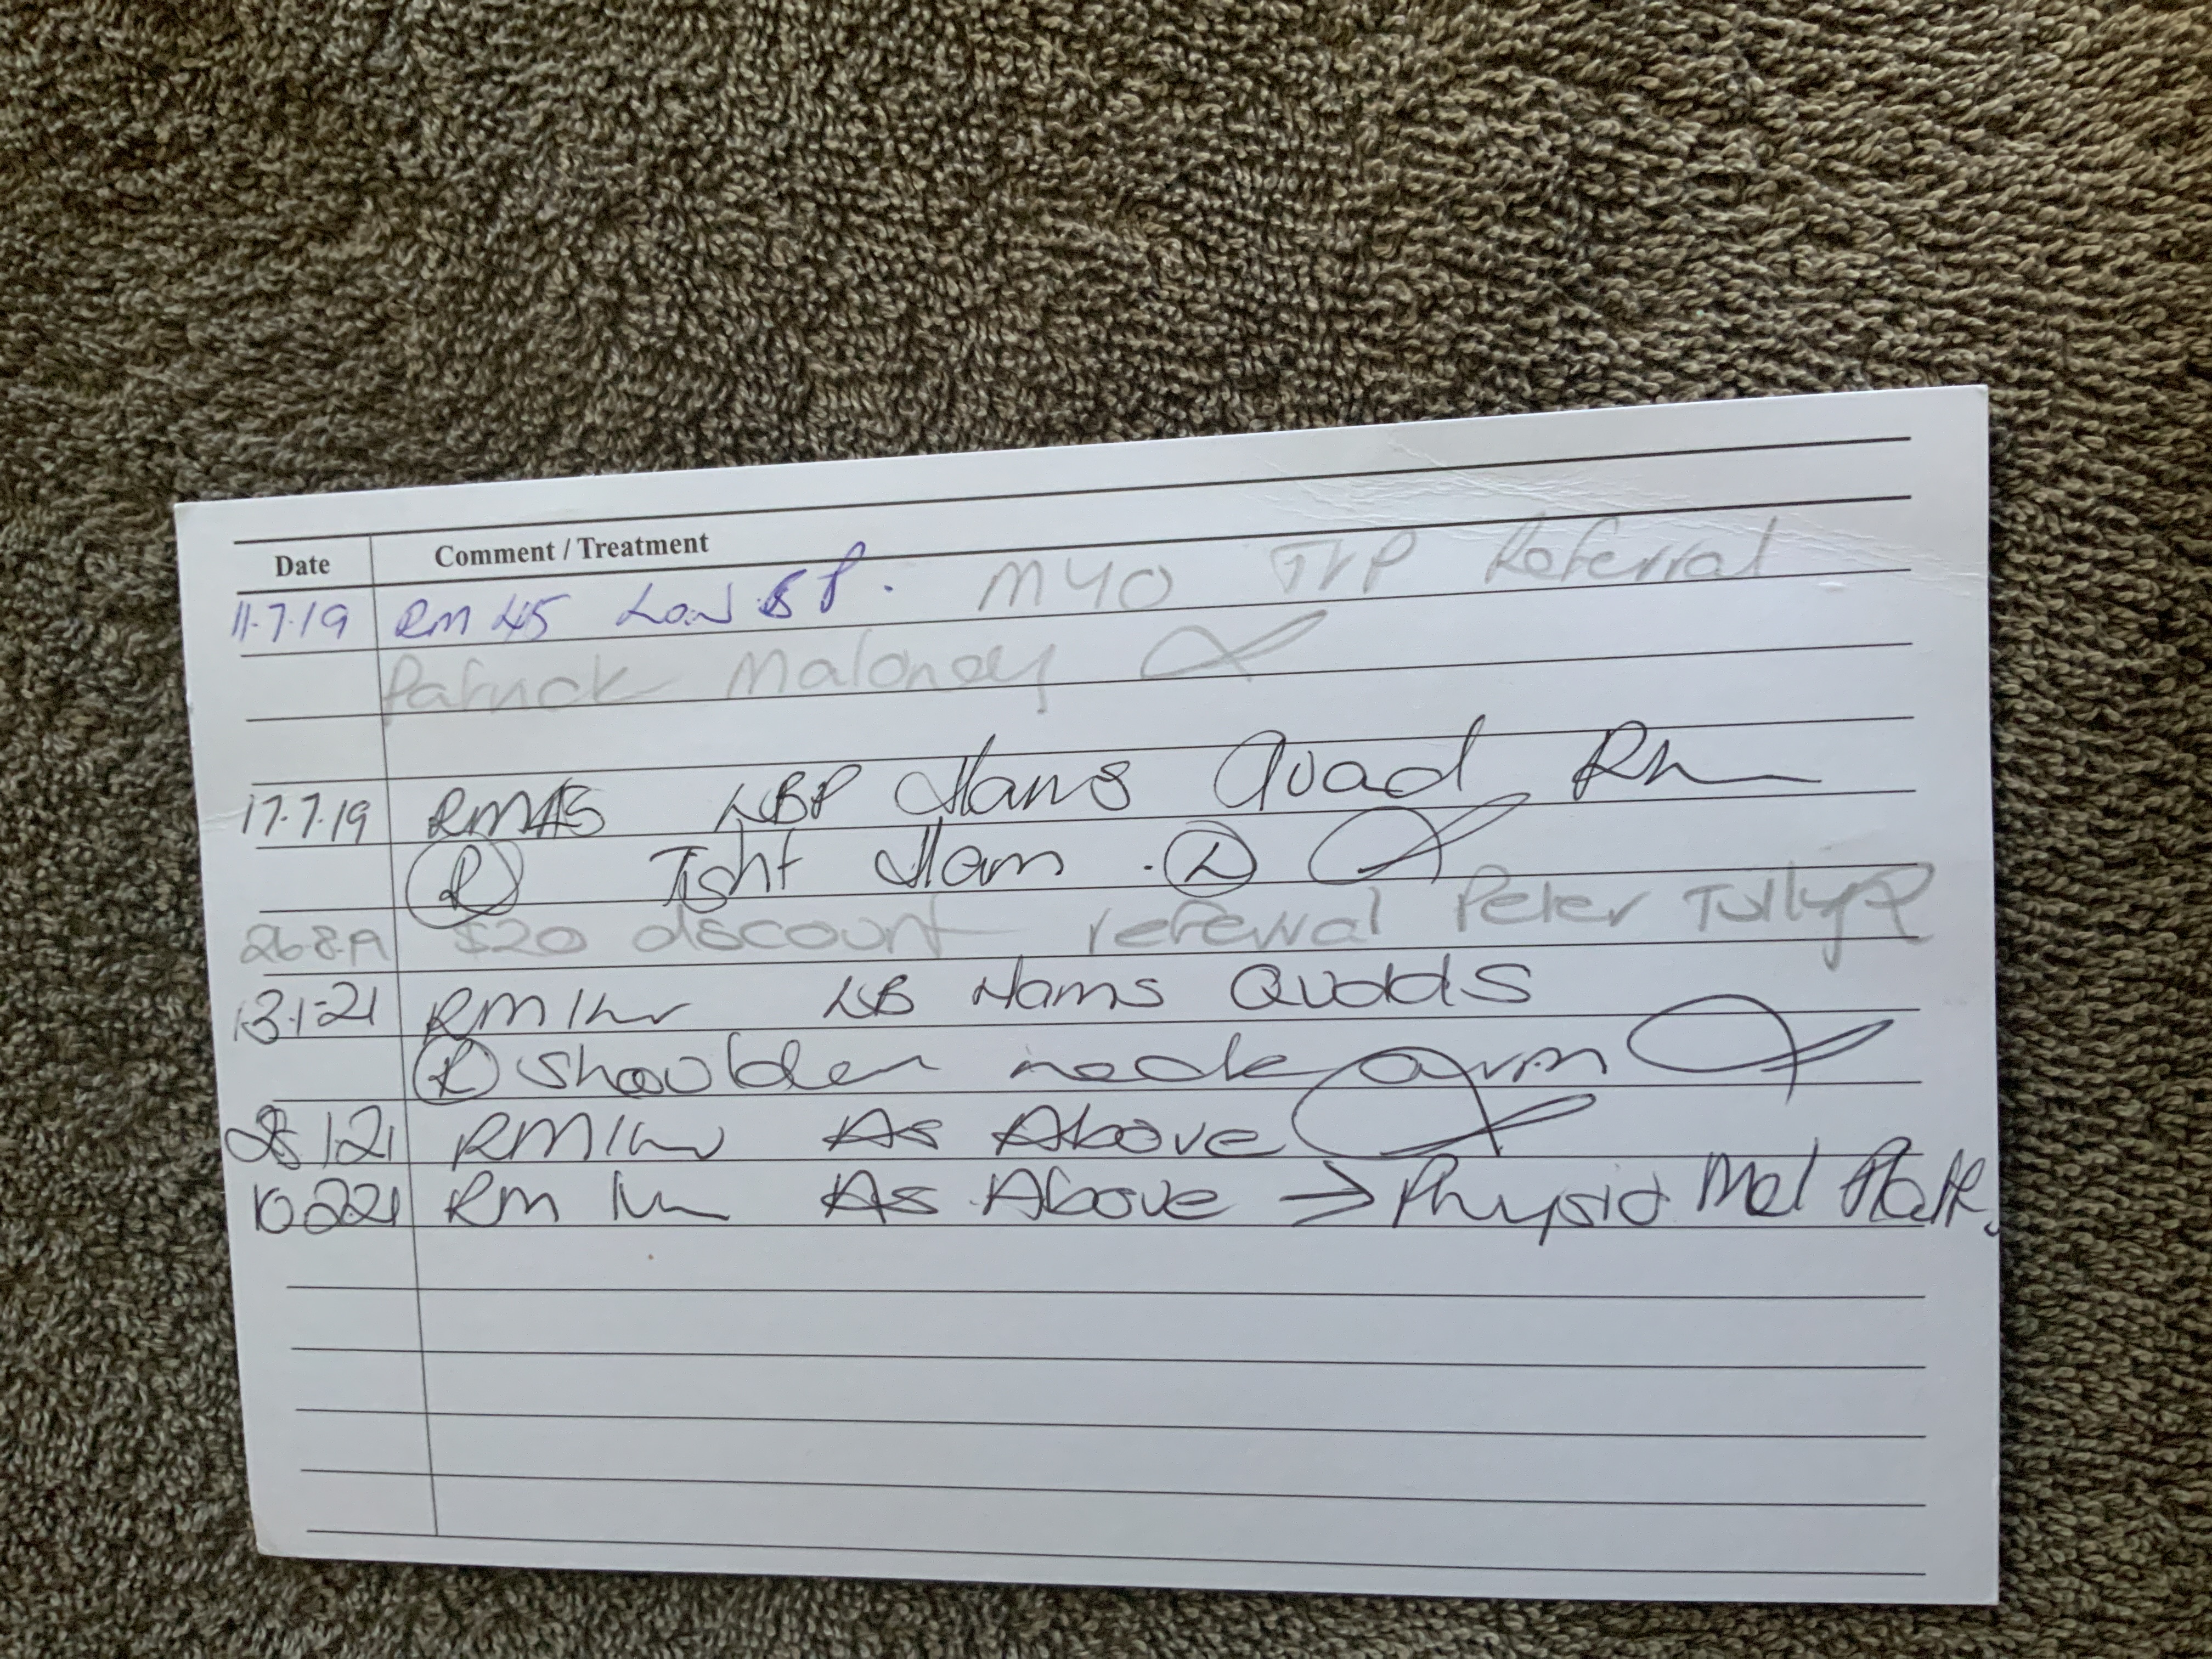 Date Comment / Treatment
11.7.19 RM 45 Low B P. MYO TrP Referral
Patrick Maloney
17.7.19 RM45 LBP Hams Quad
R Tight Ham. L
26.8.19 $20 discount referral Peter Tully
13.1.21 RM 1hr LB Hams Quads
R shoulder neck arm
28.1.21 RM 1hr As Above
10.2.21 RM 1hr As Above → Physio Mel